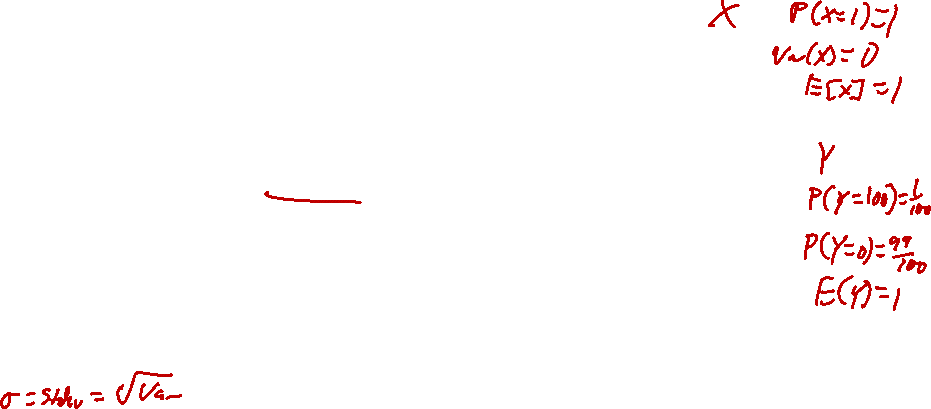 X P(X=1)=1
Var(X)=0
E[X]=1
Y
P(Y=100)=1/100
P(Y=0)=99/100
E(Y)=1
σ=stdv=√Var